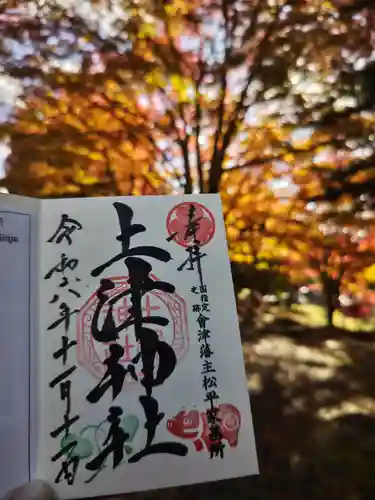 奉拝
国指定史跡
會津藩主松平家墓所
土津神社
令和六年十一月十一日